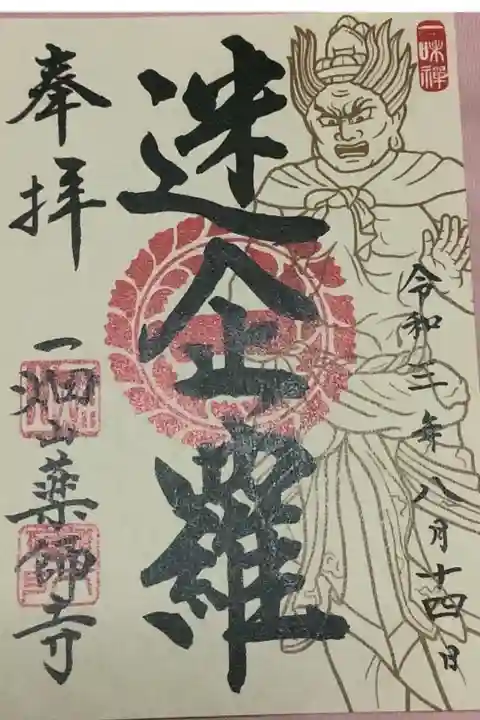 一味禅
令和三年八月十四日
迷企羅
奉拝
一畑山薬師寺